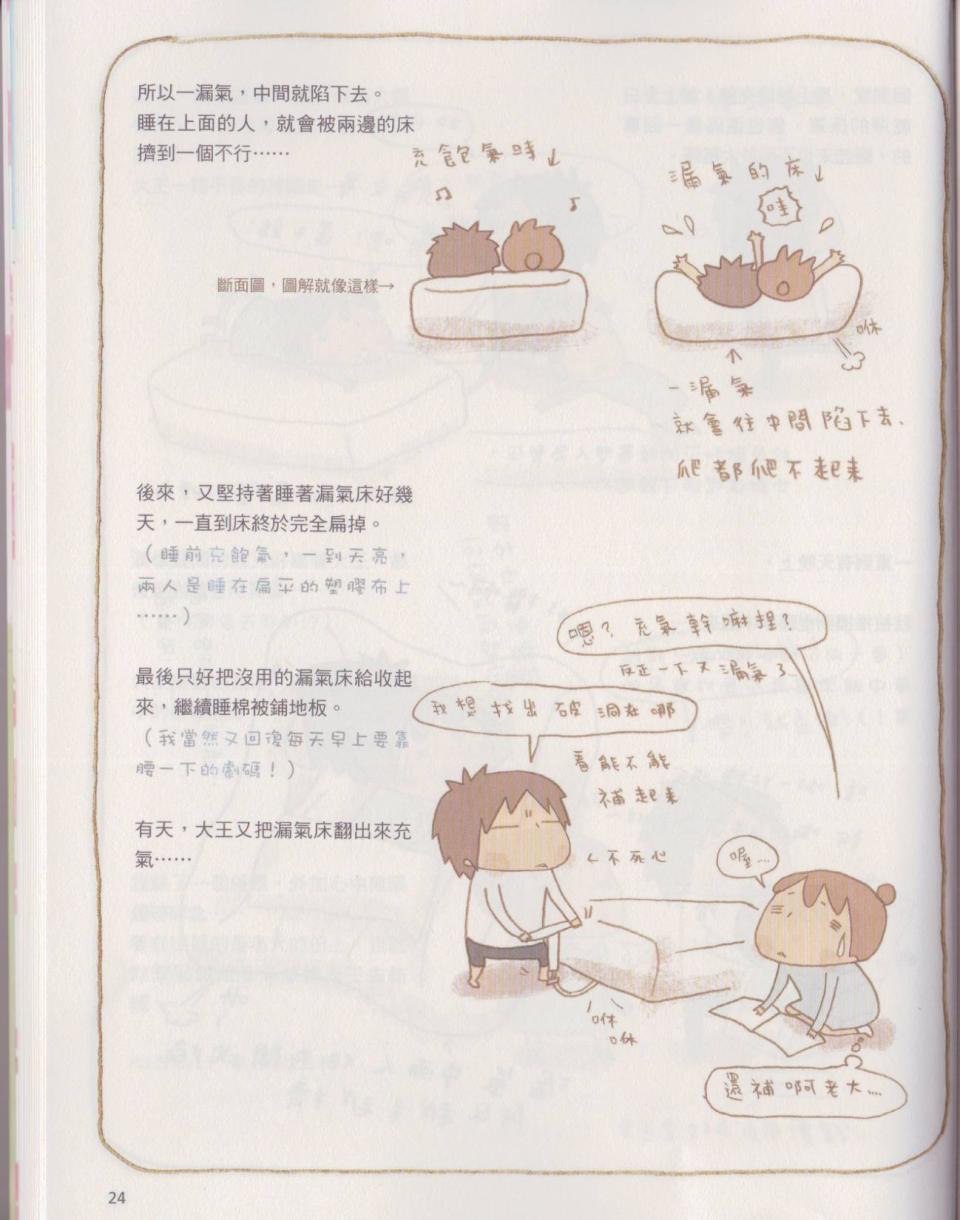 所以一漏氣，中間就陷下去。
睡在上面的人，就會被兩邊的床
擠到一個不行⋯⋯
充飽氣時↓
漏氣的床↓
哇
斷面圖，圖解就像這樣→
咻
↑
一漏氣
就會往中間陷下去.
爬都爬不起來
後來，又堅持著睡著漏氣床好幾
天，一直到床終於完全扁掉。
（睡前充飽氣，一到天亮，
兩人是睡在扁平的塑膠布上
⋯⋯）
最後只好把沒用的漏氣床給收起
來，繼續睡棉被鋪地板。
（我當然又回復每天早上要靠
腰一下的劇碼！）
有天，大王又把漏氣床翻出來充
氣⋯⋯
嗯？充氣幹嘛捏？
反正一下又漏氣了
我想找出破洞在哪
看能不能
補起來
←不死心
喔...
咻
咻
還補啊老大....
24